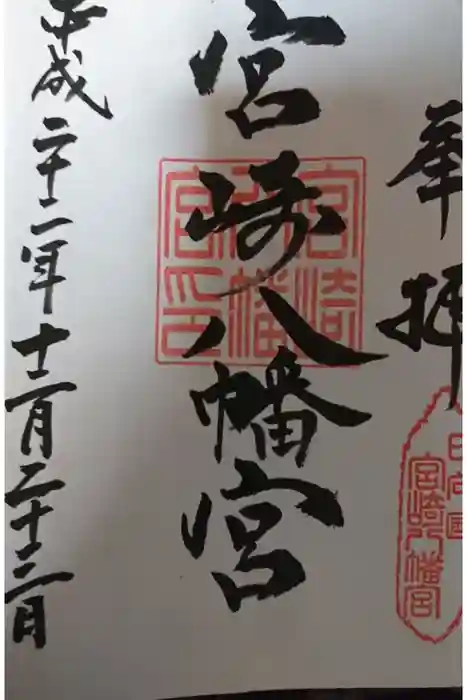 奉拝
日向国
宮崎八幡宮
宮崎八幡宮
宮崎八幡宮印
平成二十二年十二月二十三日